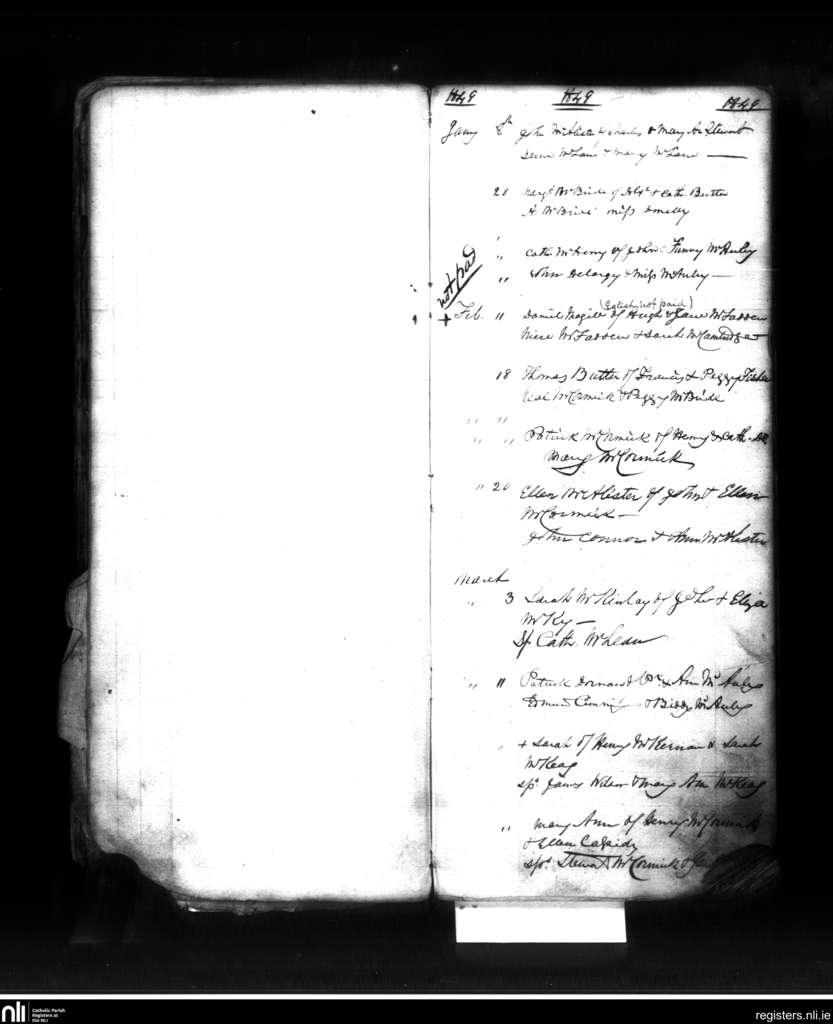 1849 1849 1849
Jany 8th John McAlister of Charles & Mary An Stewart
McLane & Mary McLane
21 Margt McBride of Alexr & Cath. Butler
A. McBride miss
" Cath. McHenry of John & Fanny McAuley
" John Delargy & Miss McAuley
not paid
(English, not paid)
+ Feb. " Daniel Magill of Hugh & Jane McFadden
McFadden & Sarah
18 Thomas Butler of Francis & Peggy Fisher
Neal McCormick & Peggy McBride
" "
" " Patrick McCormick of Henry & Cath.
Mary McCormick
" 20 Ellen McAlister of John & Ellen
McCormick
John Connor & Ann McAlister
March
" 3 Sarah McKinlay of John & Eliza
McKy
Sp Cath. McLean
" 11 Patrick & Ann McAuley
Edmund & Biddy McAuley
" + Sarah of Henry McKernan & Sarah
McKeag
sps. James Wilson & Mary Ann McKeag
" Mary Ann of Henry McCormick
& Ellen Cassidy
sps. Stewart McCormick &
nli
Catholic Parish
Registers at
the NLI
registers.nli.ie